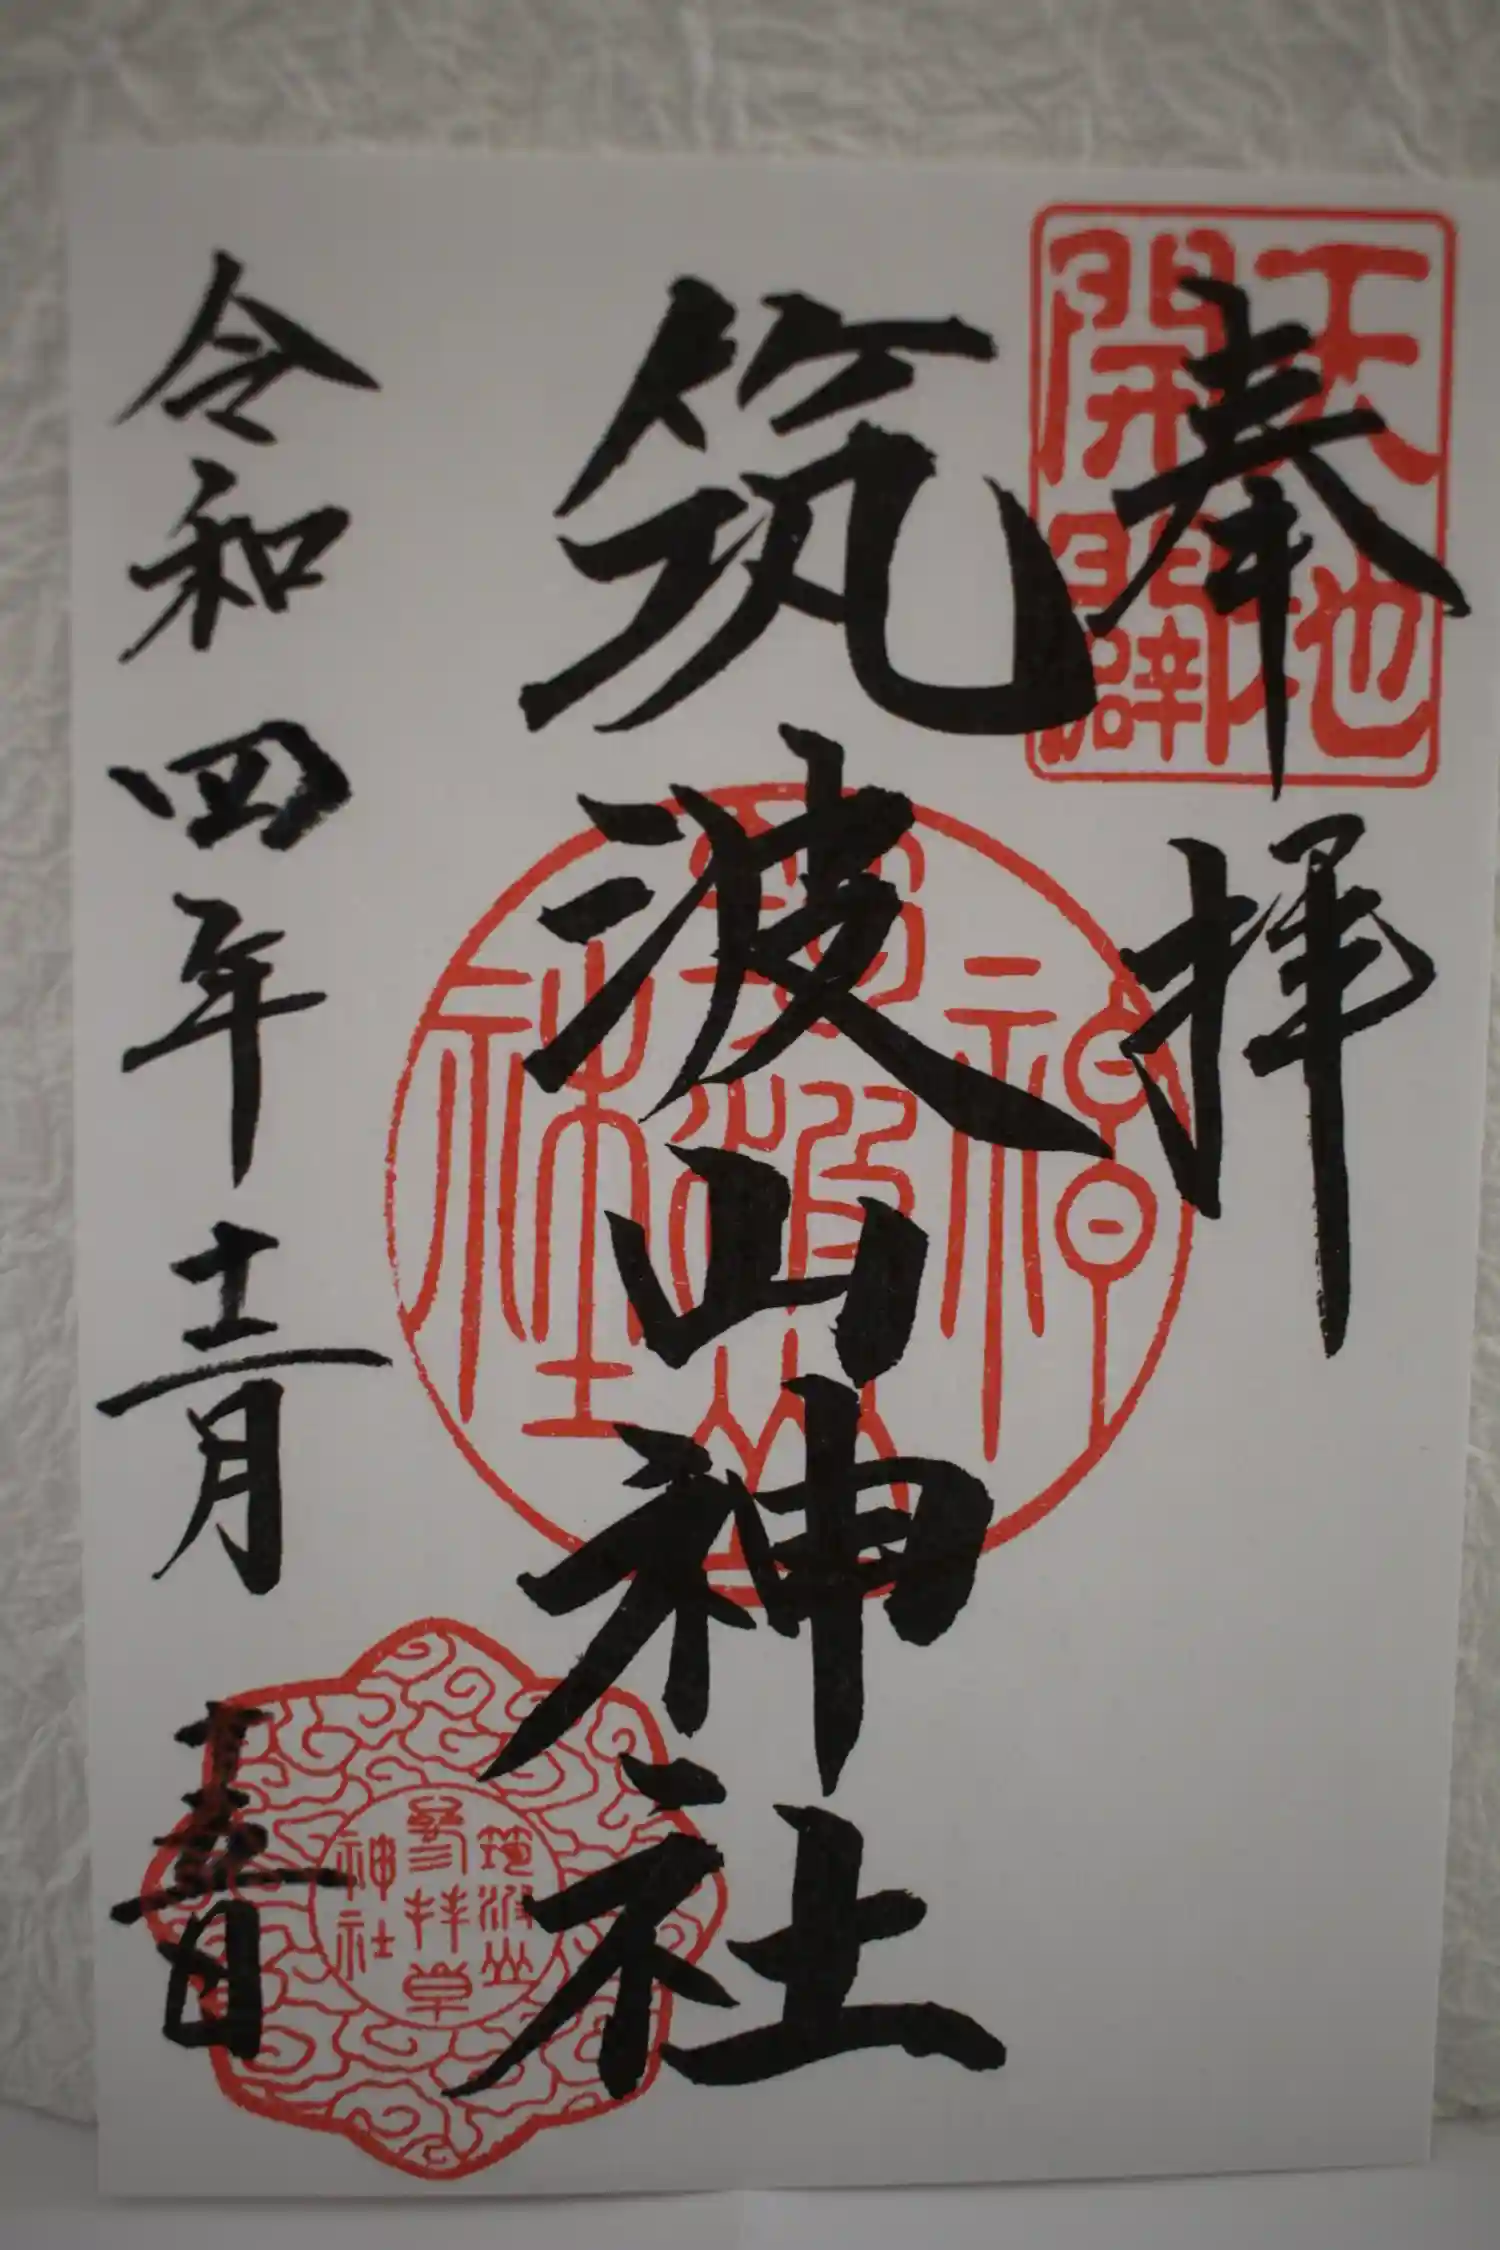 奉拝
天地
開闢
筑波山神社
筑波山
神社
令和四年十二月十五日
筑波山
参拝章
神社